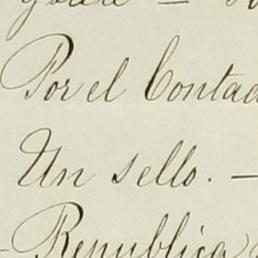 Por el Contad
Un sello. —
- Republica